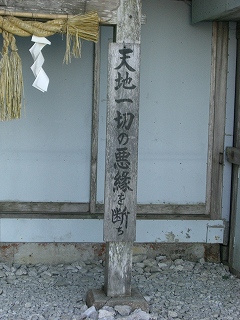 天地一切の悪縁を断ち